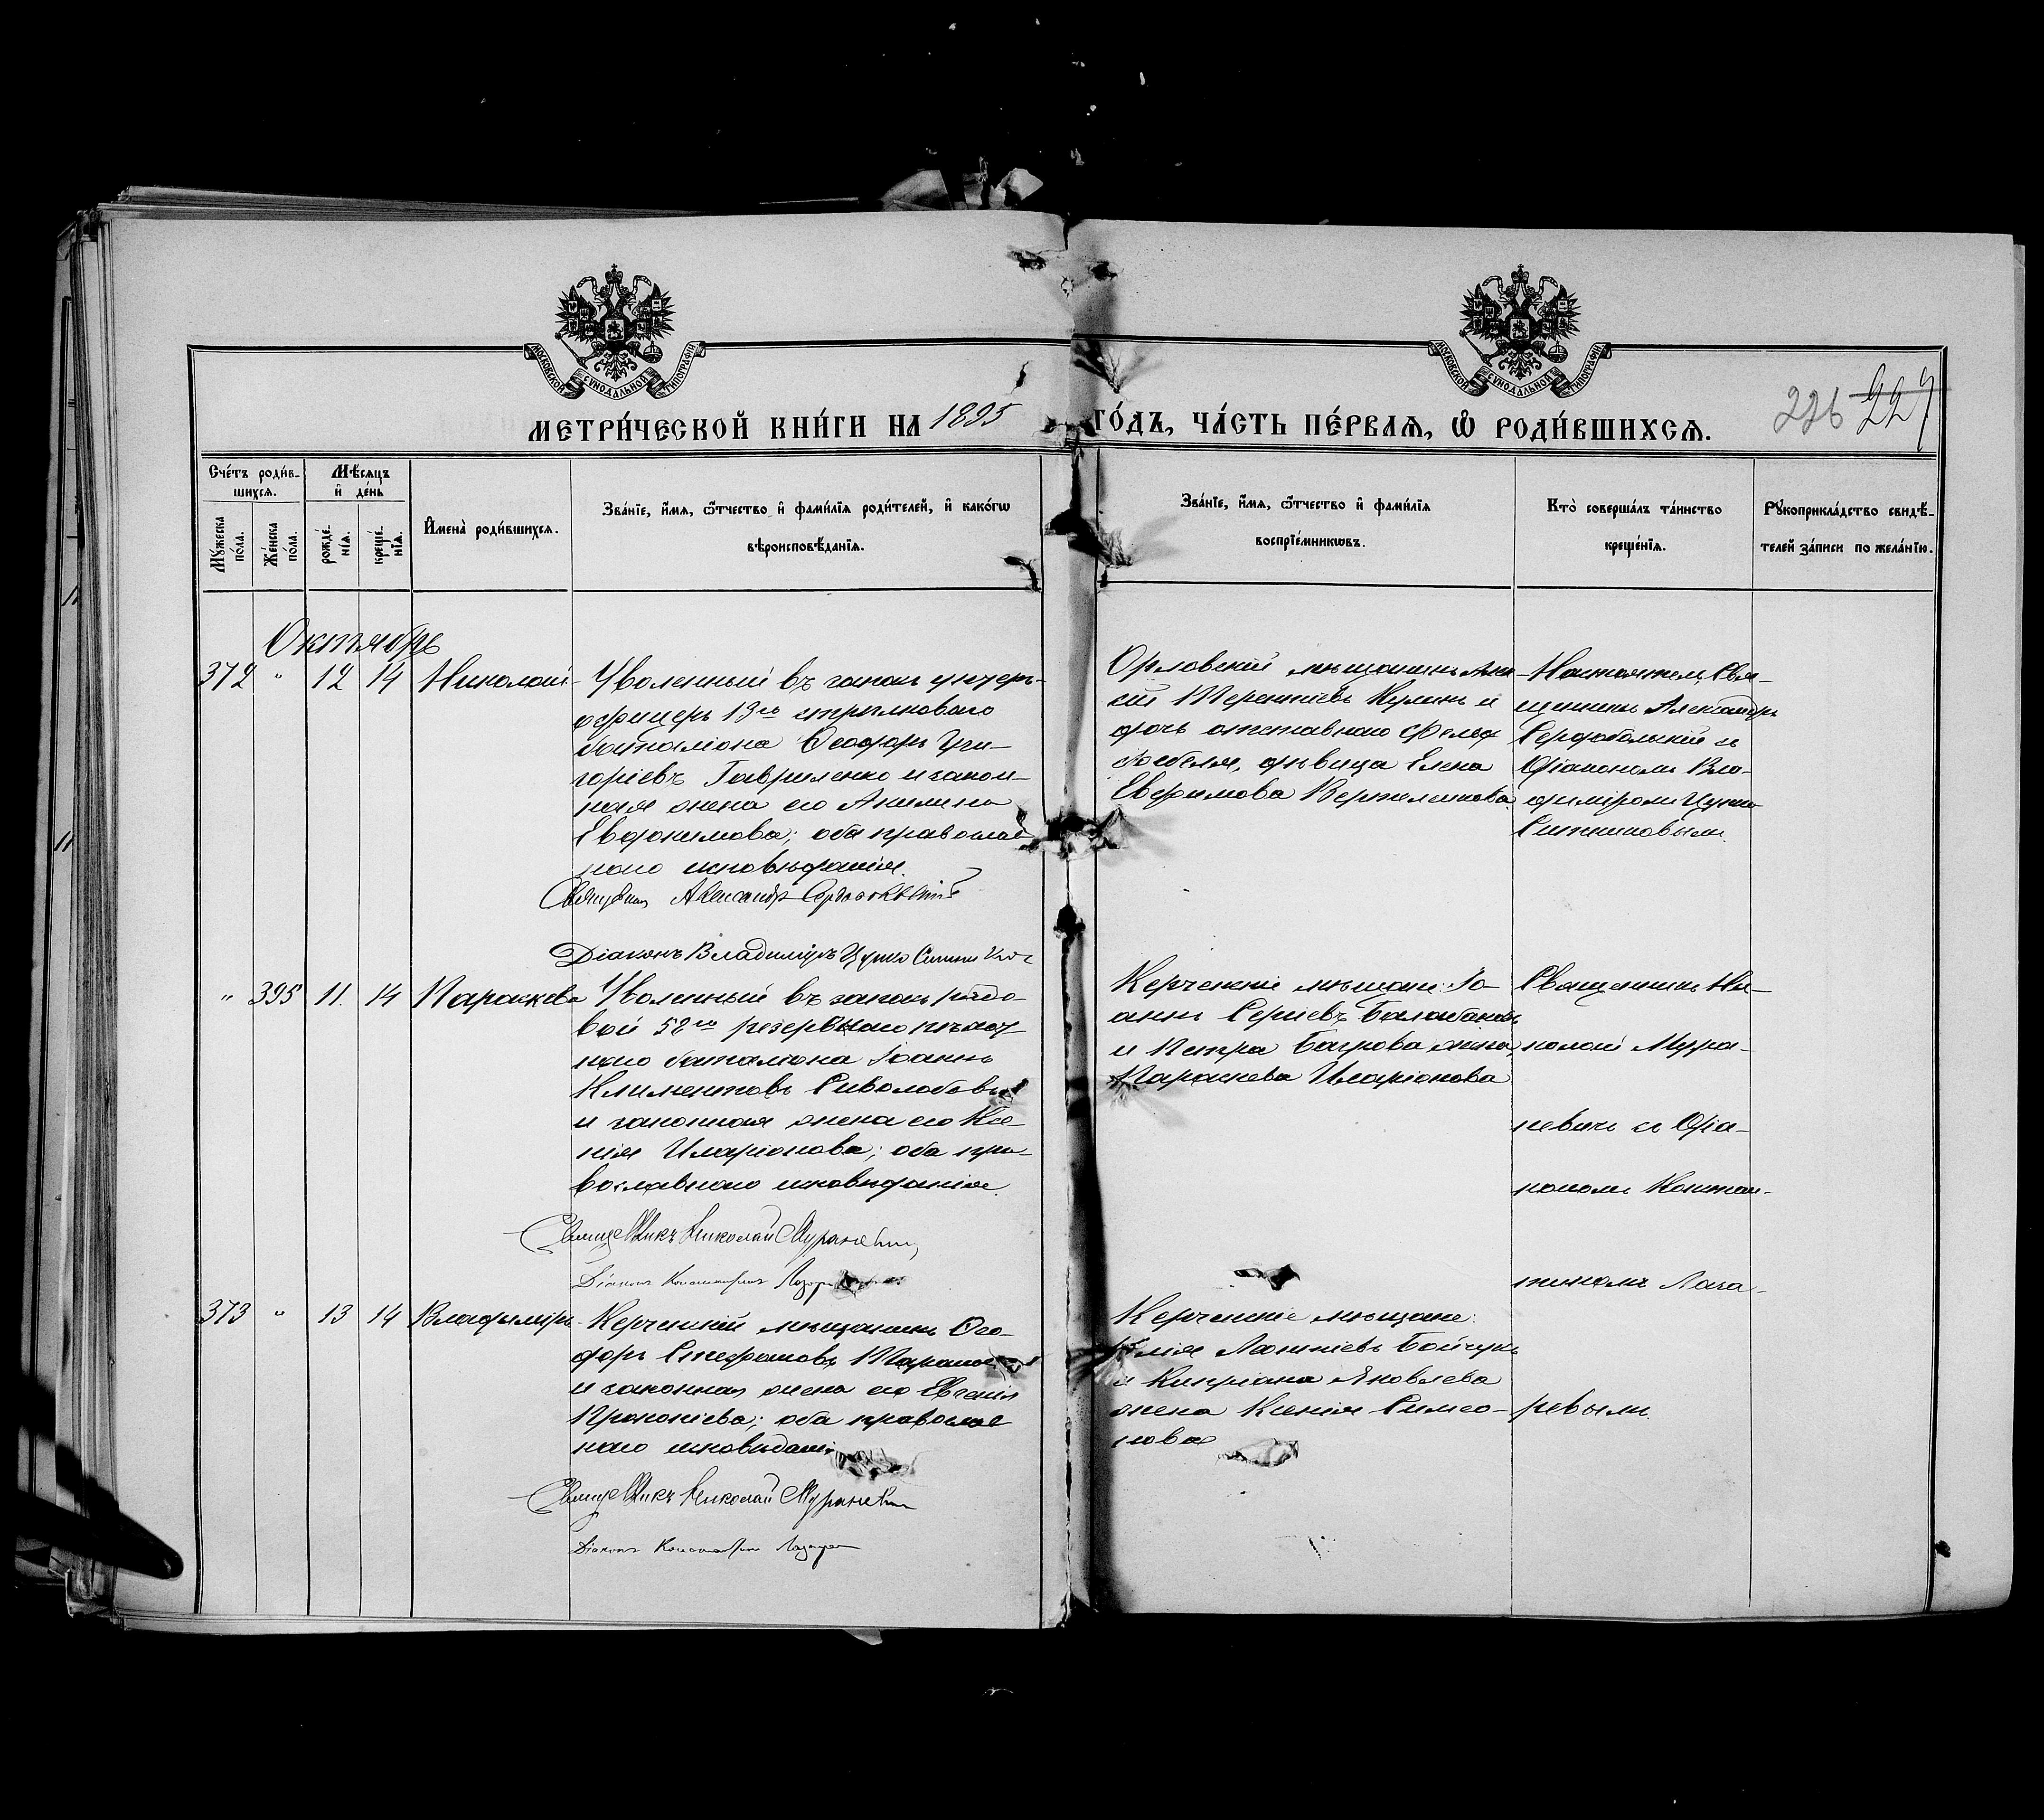 МОСКОВСКОЙ СѴНОДАЛЬНОЙ ТИПОГРАФІИ
МОСКОВСКОЙ СѴНОДАЛЬНОЙ ТИПОГРАФІИ
МЕТРИ́ЧЕСКОЙ КНИ́ГИ НА 1895
ГО́ДЪ, ЧА́СТЬ ПЕ́РВАѦ, Ѡ҆ РОДИ́ВШИХСѦ.
226 227
Сче́тъ роди́в-
шихсѧ.
Мꙋ́жеска по́ла.
Же́нска по́ла.
Мѣ́сѧцъ
и҆ де́нь
рожде́нїѧ.
креще́нїѧ.
И҆мена̀ роди́вшихсѧ.
Зва́нїе, и҆́мѧ, ѻ҆́тчество и҆ фами́лїѧ роди́телей, и҆ како́гѡ
вѣроисповѣ́данїѧ.
Зва́нїе, и҆́мѧ, ѻ҆́тчество и҆ фами́лїѧ
воспрїе́мникѡвъ.
Кто̀ соверша́лъ та́инство
креще́нїѧ.
Рꙋкоприкла́дство свидѣ́-
телей за́писи по жела́нїю.
Октябрь
372 " 12 14 Николай
Уволенный въ запасъ унтеръ-
офицеръ 13го стрѣлковаго
баталіона Ѳеодоръ Гри-
горіевъ Гавриленко и закон-
ная жена его Акилина
Евфимова; оба православ-
наго исповѣданія.
Священникъ Александръ Сердобольскій
Діаконъ Владиміръ Цушко Ситниковъ
Орловскій мѣщанинъ
Терентіевъ Кулинъ и
дочь отставного фельд
фебеля, дѣвица Елена
Евфимова
Настоятель Свя-
щенникъ Александръ
Сердобольскій съ
Діакономъ Вла-
диміромъ Цушко
Ситниковымъ.
" 395 11. 14 Параскева
Уволенный въ запасъ рядо-
вой 52го резервнаго пѣхот
наго баталіона Іоаннъ
Климентовъ Сиволобовъ
и законная жена его Ксе-
нія Иларіонова; оба пра-
вославнаго исповѣданія.
Священникъ Николай Мураневичъ
Діаконъ Константинъ Лазаревъ
Керченскіе мѣщане: Іо-
аннъ Сергіевъ Балабановъ
и Петра Багрова жена
Параскева Иларіонова
Священникъ Ни-
колай Мура-
невичъ съ Діа-
кономъ Констан-
тиномъ Лаза-
ревымъ.
373 " 13 14 Владиміръ
Керченскій мѣщанинъ Ѳео-
доръ Стефановъ
и законная жена его Евгенія
Прокопіева; оба православ
наго исповѣданія
Священникъ Николай Мураневичъ
Діаконъ Константинъ Лазаревъ
Керченскіе мѣщане:
Илія Леонтіевъ Бойчукъ
и Кипріана Яковлева
жена Ксенія Симео-
нова